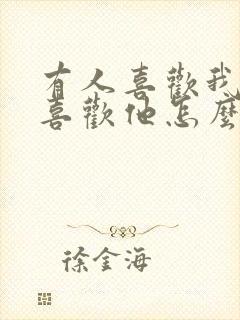 有人喜歡我
喜歡他怎麼
徐金海